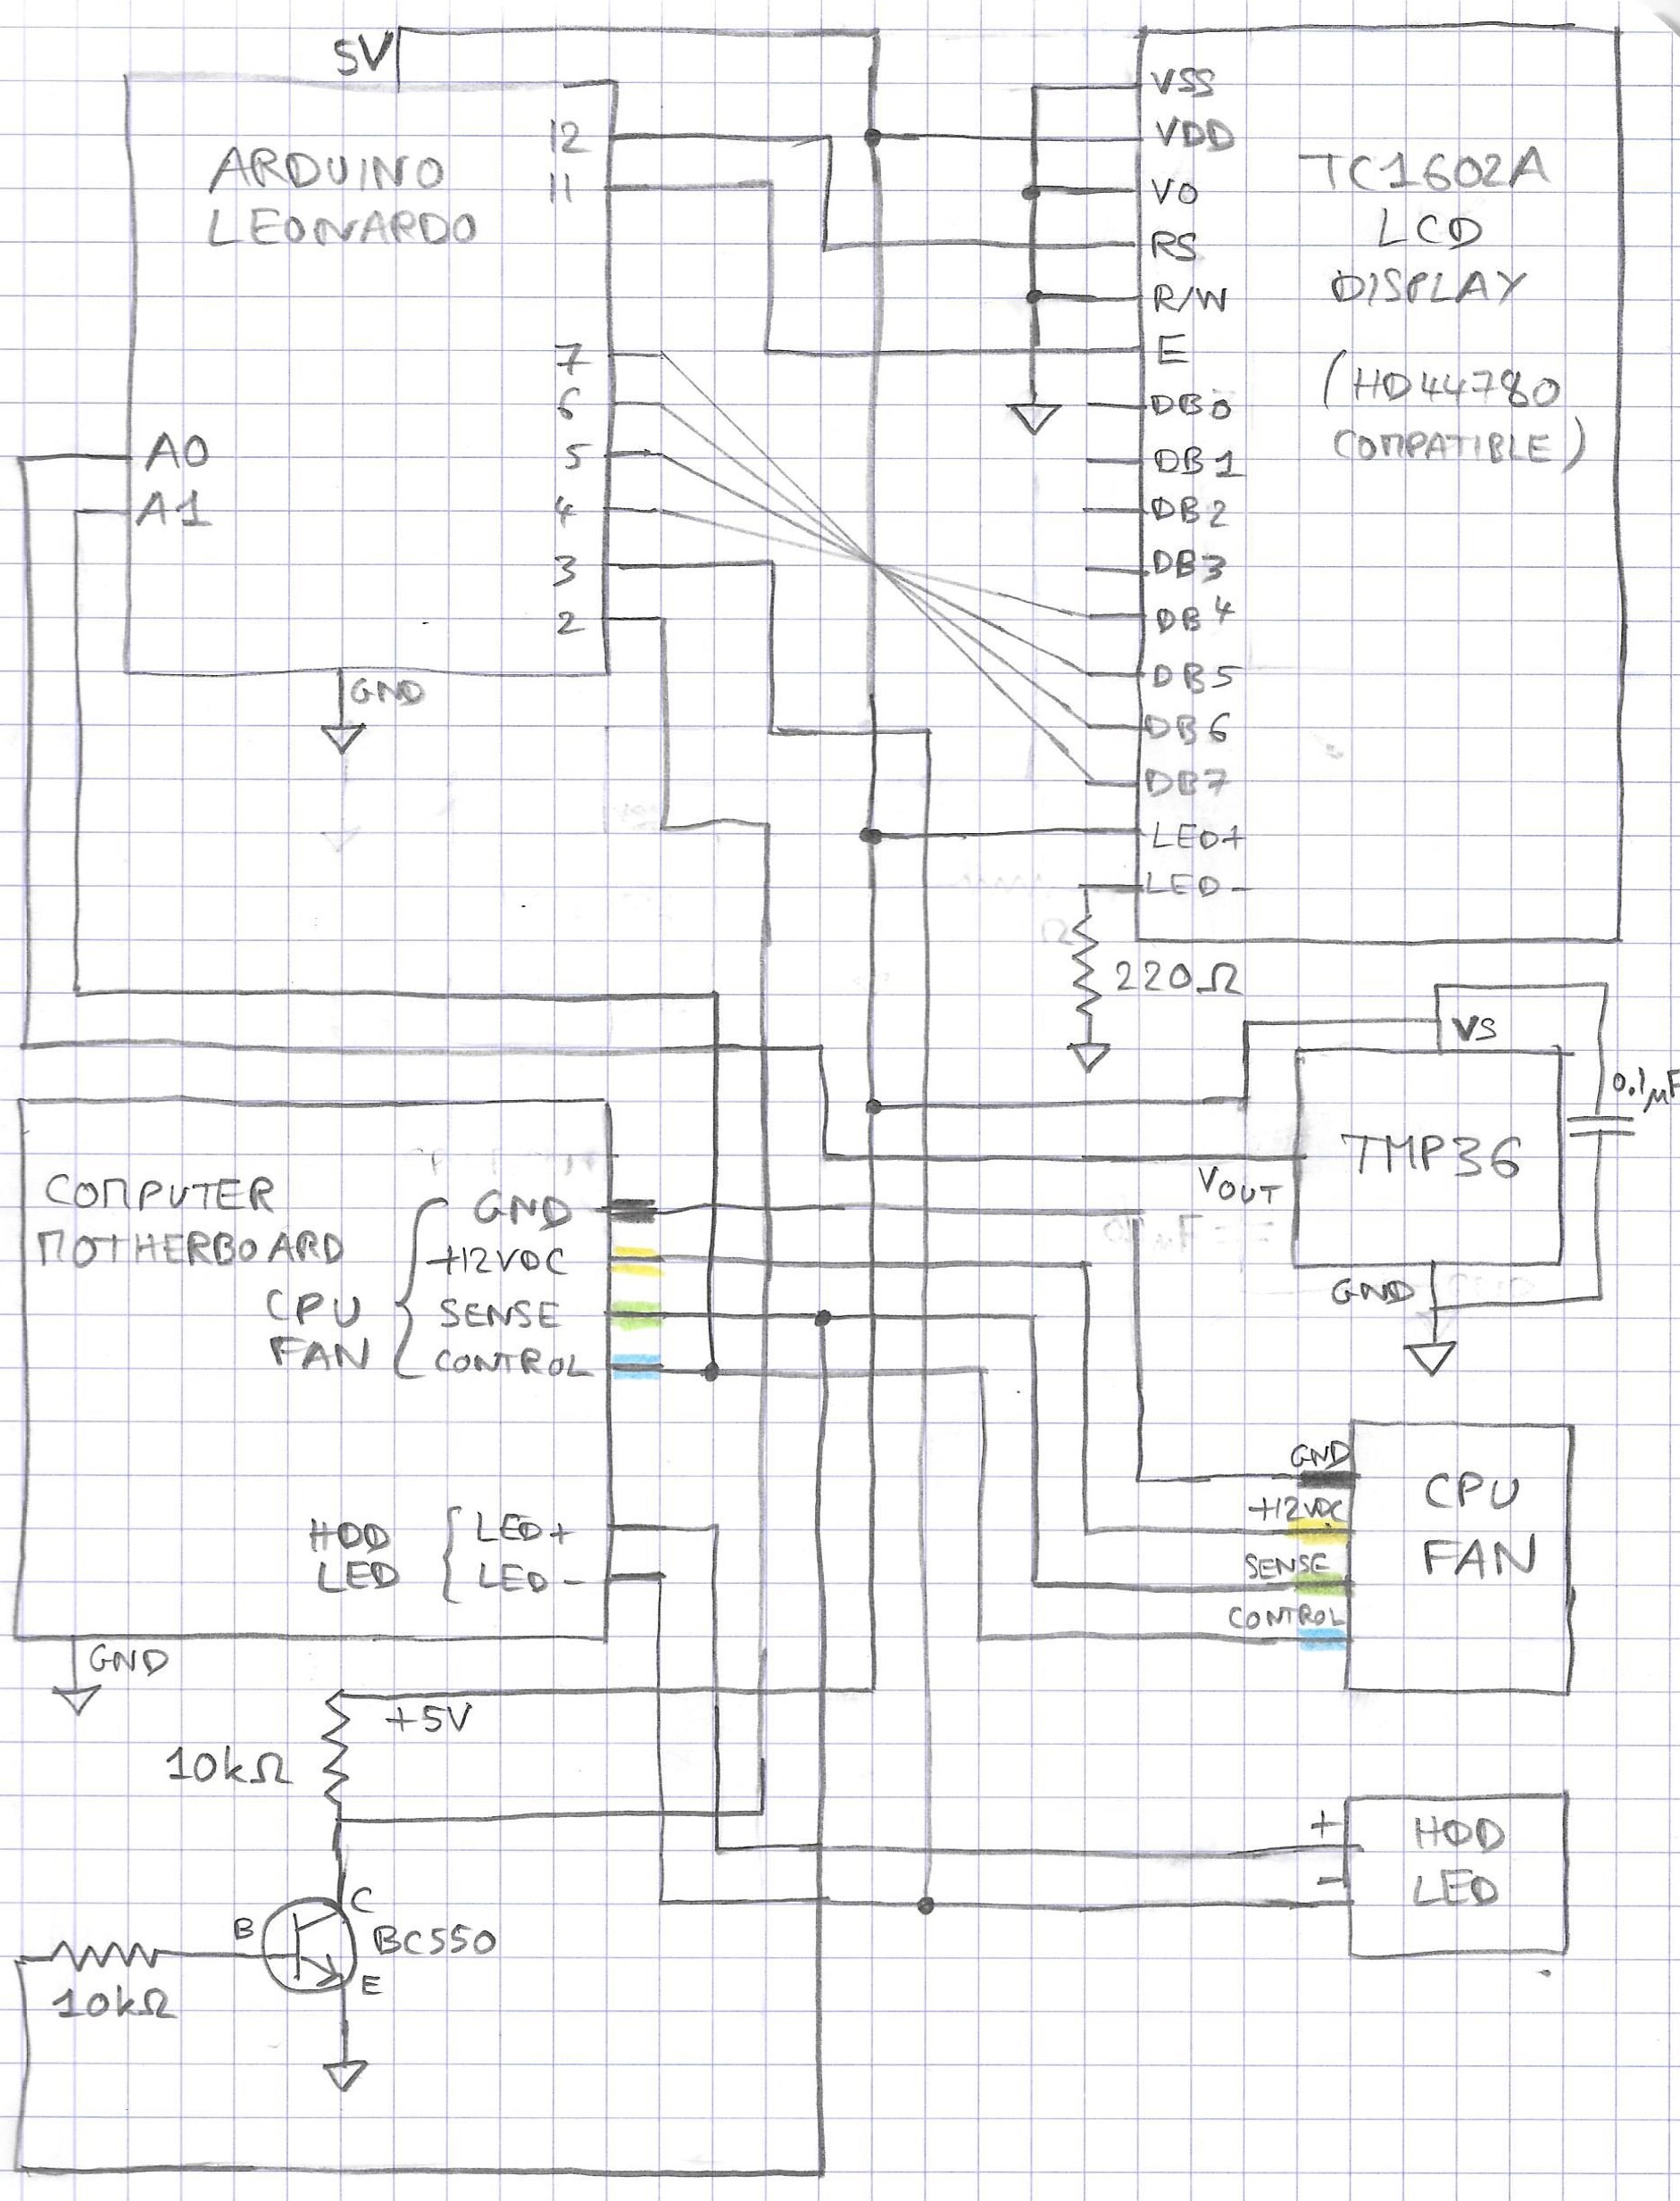 5V
ARDUINO
LEONARDO
12
11
7
6
5
4
3
2
A0
A1
GND
VSS
VDD
VO
RS
R/W
E
DB0
DB1
DB2
DB3
DB4
DB5
DB6
DB7
LED+
LED-
TC1602A
LCD
DISPLAY
(HD44780
COMPATIBLE)
220Ω
VS
0.1µF
TMP36
VOUT
GND
COMPUTER
MOTHERBOARD
CPU
FAN
GND
+12VDC
SENSE
CONTROL
HDD
LED
LED+
LED-
GND
GND
+12VDC
SENSE
CONTROL
CPU
FAN
+5V
10kΩ
C
B
BC550
E
10kΩ
+
-
HDD
LED